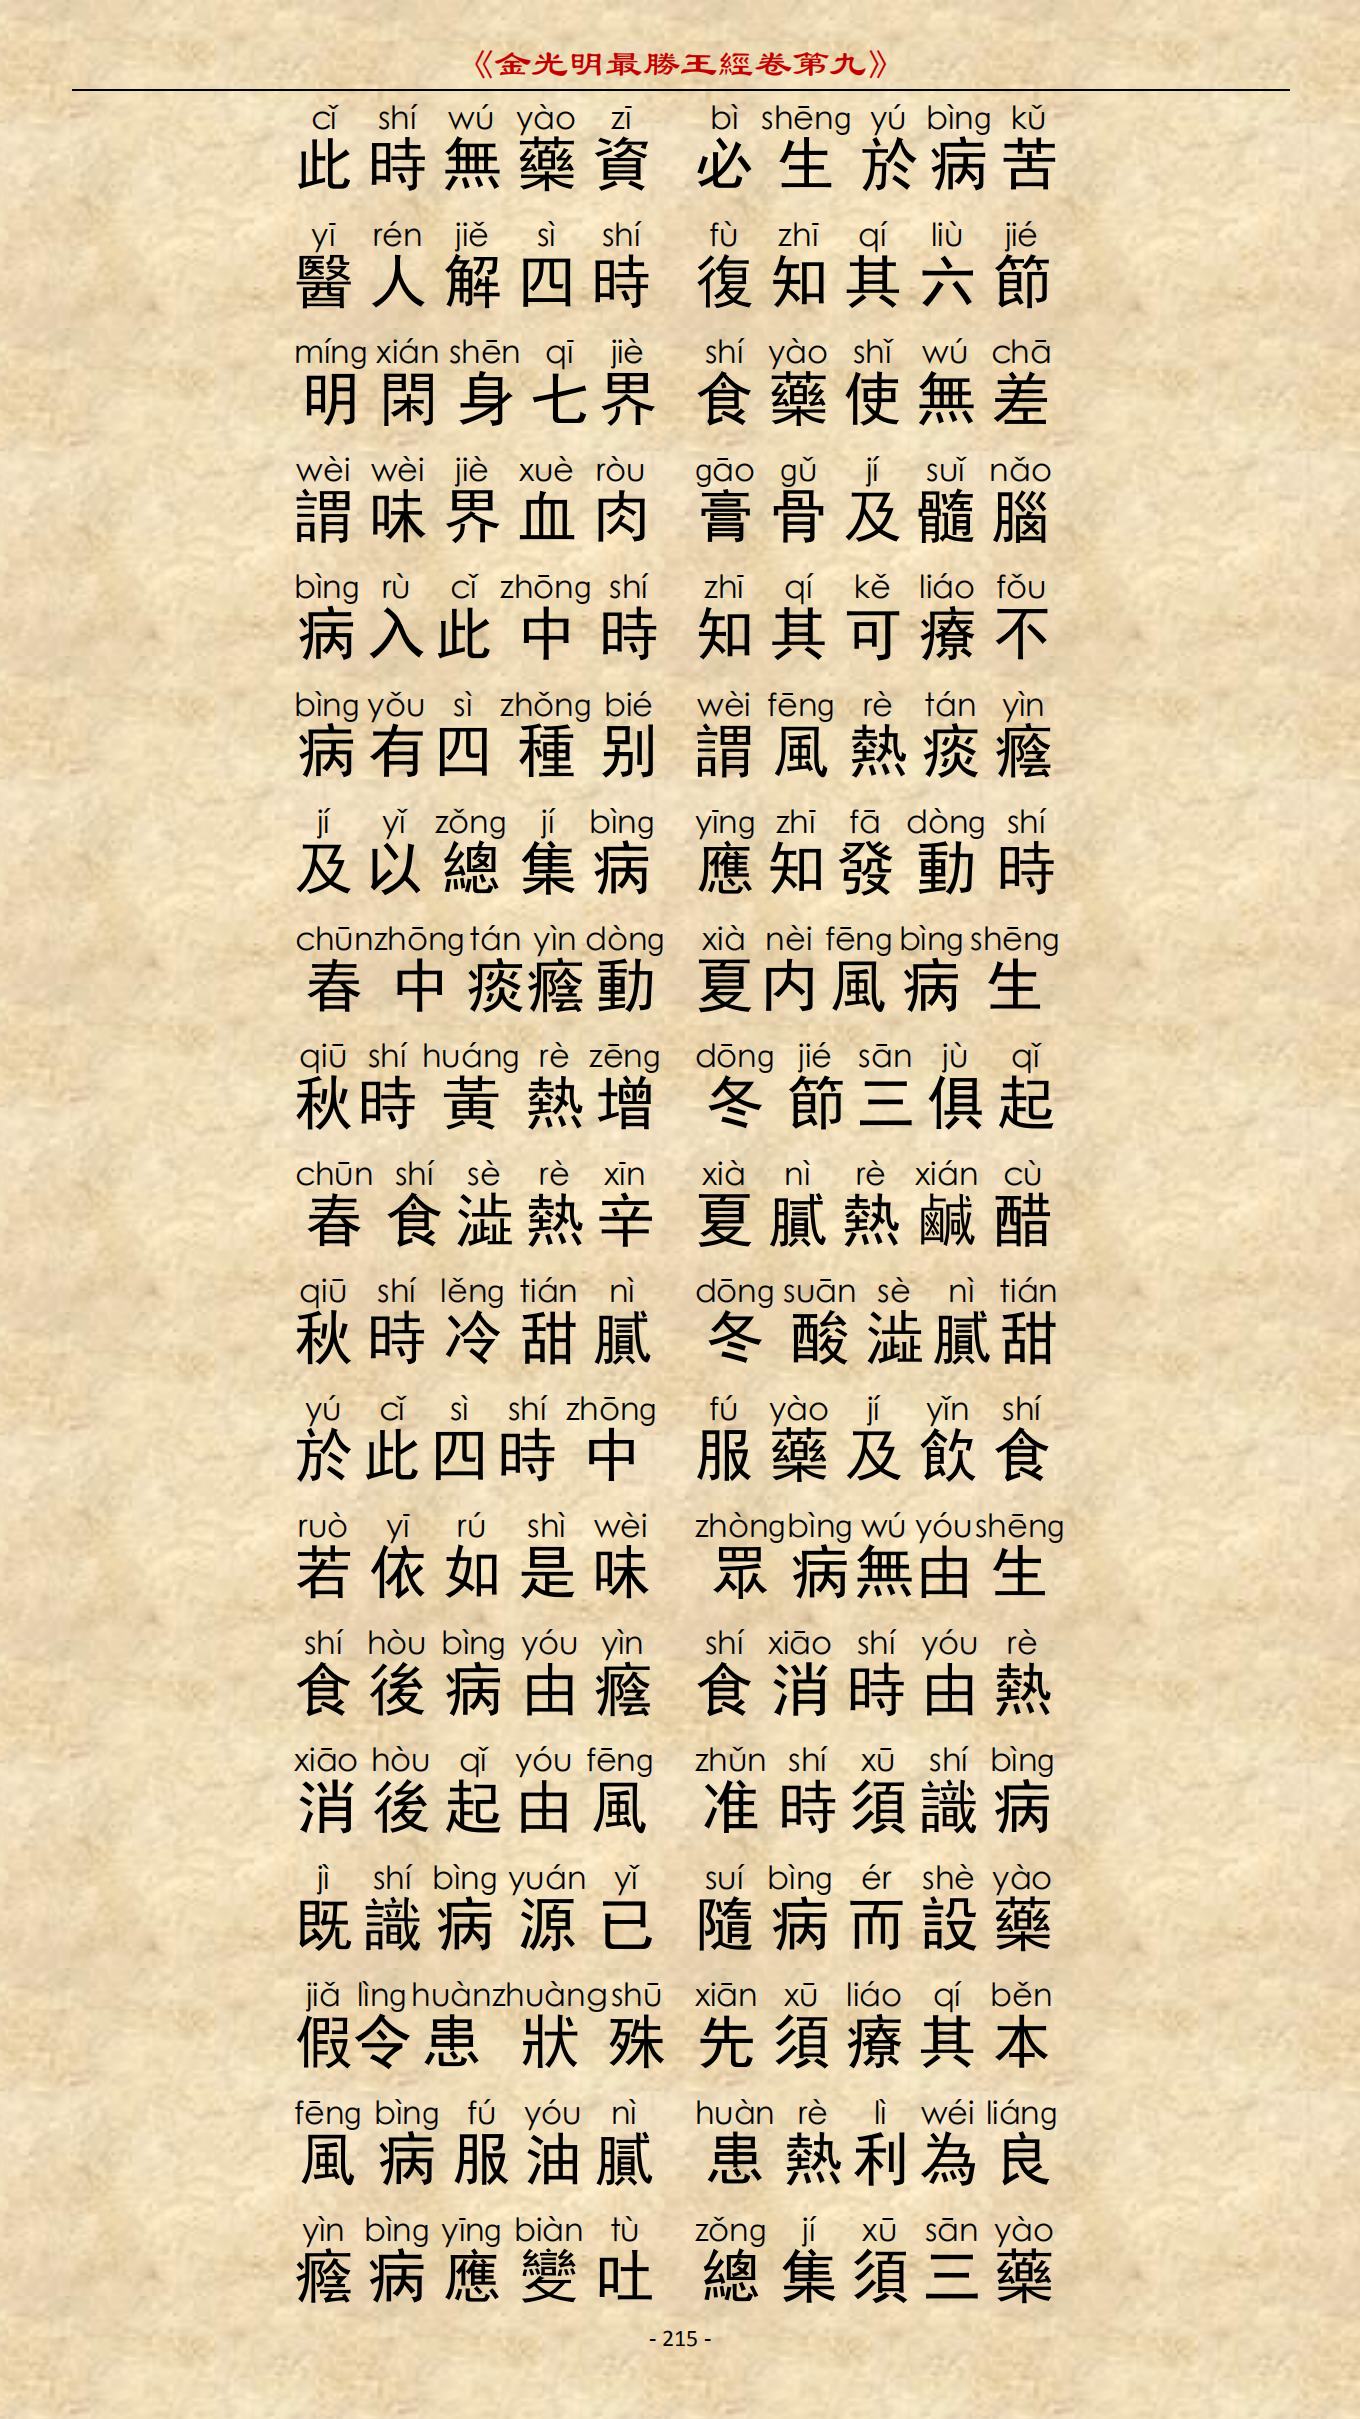 《金光明最勝王經卷第九》
cǐ shí wú yào zī bì shēng yú bìng kǔ
此時無藥資 必生於病苦
yī rén jiě sì shí fù zhī qí liù jié
醫人解四時 復知其六節
míng xián shēn qī jiè shí yào shǐ wú chā
明閑身七界 食藥使無差
wèi wèi jiè xuè ròu gāo gǔ jí suǐ nǎo
謂味界血肉 膏骨及髓腦
bìng rù cǐ zhōng shí zhī qí kě liáo fǒu
病入此中時 知其可療不
bìng yǒu sì zhǒng bié wèi fēng rè tán yìn
病有四種别 謂風熱痰癊
jí yǐ zǒng jí bìng yīng zhī fā dòng shí
及以總集病 應知發動時
chūn zhōng tán yìn dòng xià nèi fēng bìng shēng
春中痰癊動 夏内風病生
qiū shí huáng rè zēng dōng jié sān jù qǐ
秋時黃熱增 冬節三俱起
chūn shí sè rè xīn xià nì rè xián cù
春食澁熱辛 夏膩熱鹹醋
qiū shí lěng tián nì dōng suān sè nì tián
秋時冷甜膩 冬酸澁膩甜
yú cǐ sì shí zhōng fú yào jí yǐn shí
於此四時中 服藥及飲食
ruò yī rú shì wèi zhòng bìng wú yóu shēng
若依如是味 眾病無由生
shí hòu bìng yóu yìn shí xiāo shí yóu rè
食後病由癊 食消時由熱
xiāo hòu qǐ yóu fēng zhǔn shí xū shí bìng
消後起由風 准時須識病
jì shí bìng yuán yǐ suí bìng ér shè yào
既識病源已 隨病而設藥
jiǎ lìng huàn zhuàng shū xiān xū liáo qí běn
假令患狀殊 先須療其本
fēng bìng fú yóu nì huàn rè lì wéi liáng
風病服油膩 患熱利為良
yìn bìng yīng biàn tù zǒng jí xū sān yào
癊病應變吐 總集須三藥
- 215 -